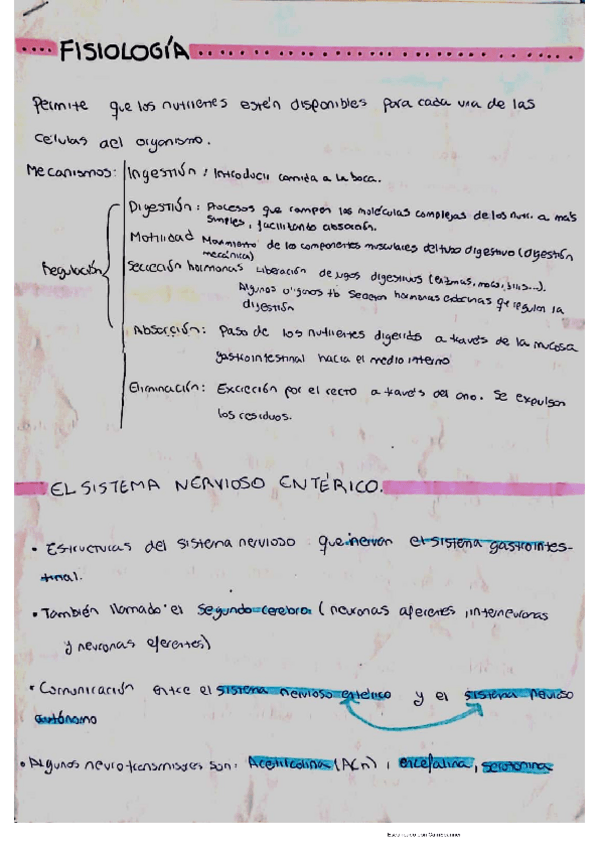 FISIOLOGÍA
Permite que los nutrientes estén disponibles para cada una de las
células del organismo.
Mecanismos: Ingestión: Introducir comida a la boca.
Digestión: Procesos que rompen las moléculas complejas de los nutri. a más
simples, facilitando absorción.
Motilidad Movimiento de los componentes musculares del tubo digestivo (digestión
mecánica)
Regulación
Secreción hormonas Liberación de jugos digestivos (enzimas, moco, bilis...).
Algunos órganos tb secretan hormonas endocrinas que regulan la
digestión
Absorción: Paso de los nutrientes digeridos a través de la mucosa
gastrointestinal hacia el medio interno
Eliminación: Excreción por el recto a través del ano. Se expulsan
los residuos.
EL SISTEMA NERVIOSO ENTÉRICO.
• Estructuras del sistema nervioso que inervan el sistema gastrointes-
tinal.
• También llamado el segundo cerebro (neuronas aferentes, interneuronas
y neuronas eferentes)
• Comunicación entre el sistema nervioso entérico y el sistema nervioso
autónomo
• Algunos neurotransmisores son: Acetilcolina (ACh), encefalina, serotonina
Escaneado con CamScanner